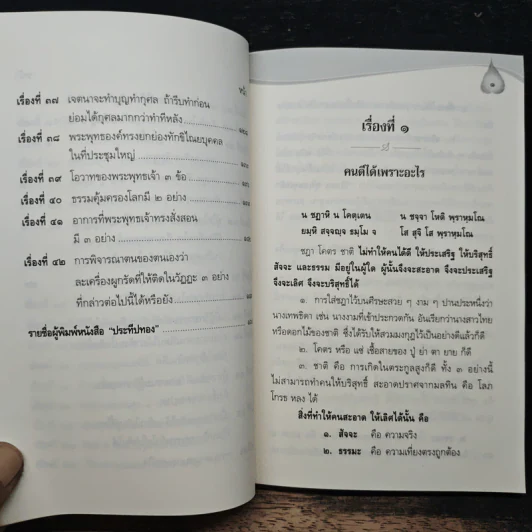 หน้า
เรื่องที่ ๓๗ เจตนาจะทำบุญทำกุศล ถ้ารีบทำก่อน
ย่อมได้กุศลมากกว่าทำทีหลัง
เรื่องที่ ๓๘ พระพุทธองค์ทรงยกย่องทักขิไณยบุคคล
ในที่ประชุมใหญ่
เรื่องที่ ๓๙ โอวาทของพระพุทธเจ้า ๓ ข้อ
เรื่องที่ ๔๐ ธรรมคุ้มครองโลกมี ๒ อย่าง
เรื่องที่ ๔๑ อาการที่พระพุทธเจ้าทรงสั่งสอน
มี ๓ อย่าง
เรื่องที่ ๔๒ การพิจารณาตนของตนเองว่า
ละเครื่องผูกรัดที่ให้ติดในวัฏฏะ ๓ อย่าง
ที่กล่าวต่อไปนี้ได้หรือยัง
รายชื่อผู้พิมพ์หนังสือ "ประทีปทอง"
เรื่องที่ ๑
คนดีได้เพราะอะไร
น ชฏาหิ น โคตฺเตน น ชจฺจา โหติ พฺราหฺมโณ
ยมฺหิ สจฺจญฺจ ธมฺโม จ โส สุจี โส พฺราหฺมโณ
ชฎา โคตร ชาติ ไม่ทำให้คนได้ดี ให้ประเสริฐ ให้บริสุทธิ์
สัจจะ และธรรม มีอยู่ในผู้ใด ผู้นั้นจึงจะสะอาด จึงจะประเสริฐ
จึงจะเลิศ จึงจะบริสุทธิ์ได้
๑. การใส่ชฎาไว้บนศีรษะสวย ๆ งาม ๆ ปานประหนึ่งว่า
นางเทพธิดา เช่น นางงามที่เข้าประกวดกัน อันเรียกว่านางสาวไทย
หรือดอกไม้ของชาติ ซึ่งได้รับให้สวมมงกุฎไว้เป็นอย่างดีแล้วก็ดี
๒. โคตร หรือ แซ่ เชื้อสายของ ปู่ ย่า ตา ยาย ก็ดี
๓. ชาติ คือ การเกิดในตระกูลสูงก็ดี ทั้ง ๓ อย่างนี้
ไม่สามารถทำคนให้บริสุทธิ์ สะอาดปราศจากมลทิน คือ โลภ
โกรธ หลง ได้
สิ่งที่ทำให้คนสะอาด ให้เลิศได้นั้น คือ
๑. สัจจะ คือ ความจริง
๒. ธรรมะ คือ ความเที่ยงตรงถูกต้อง